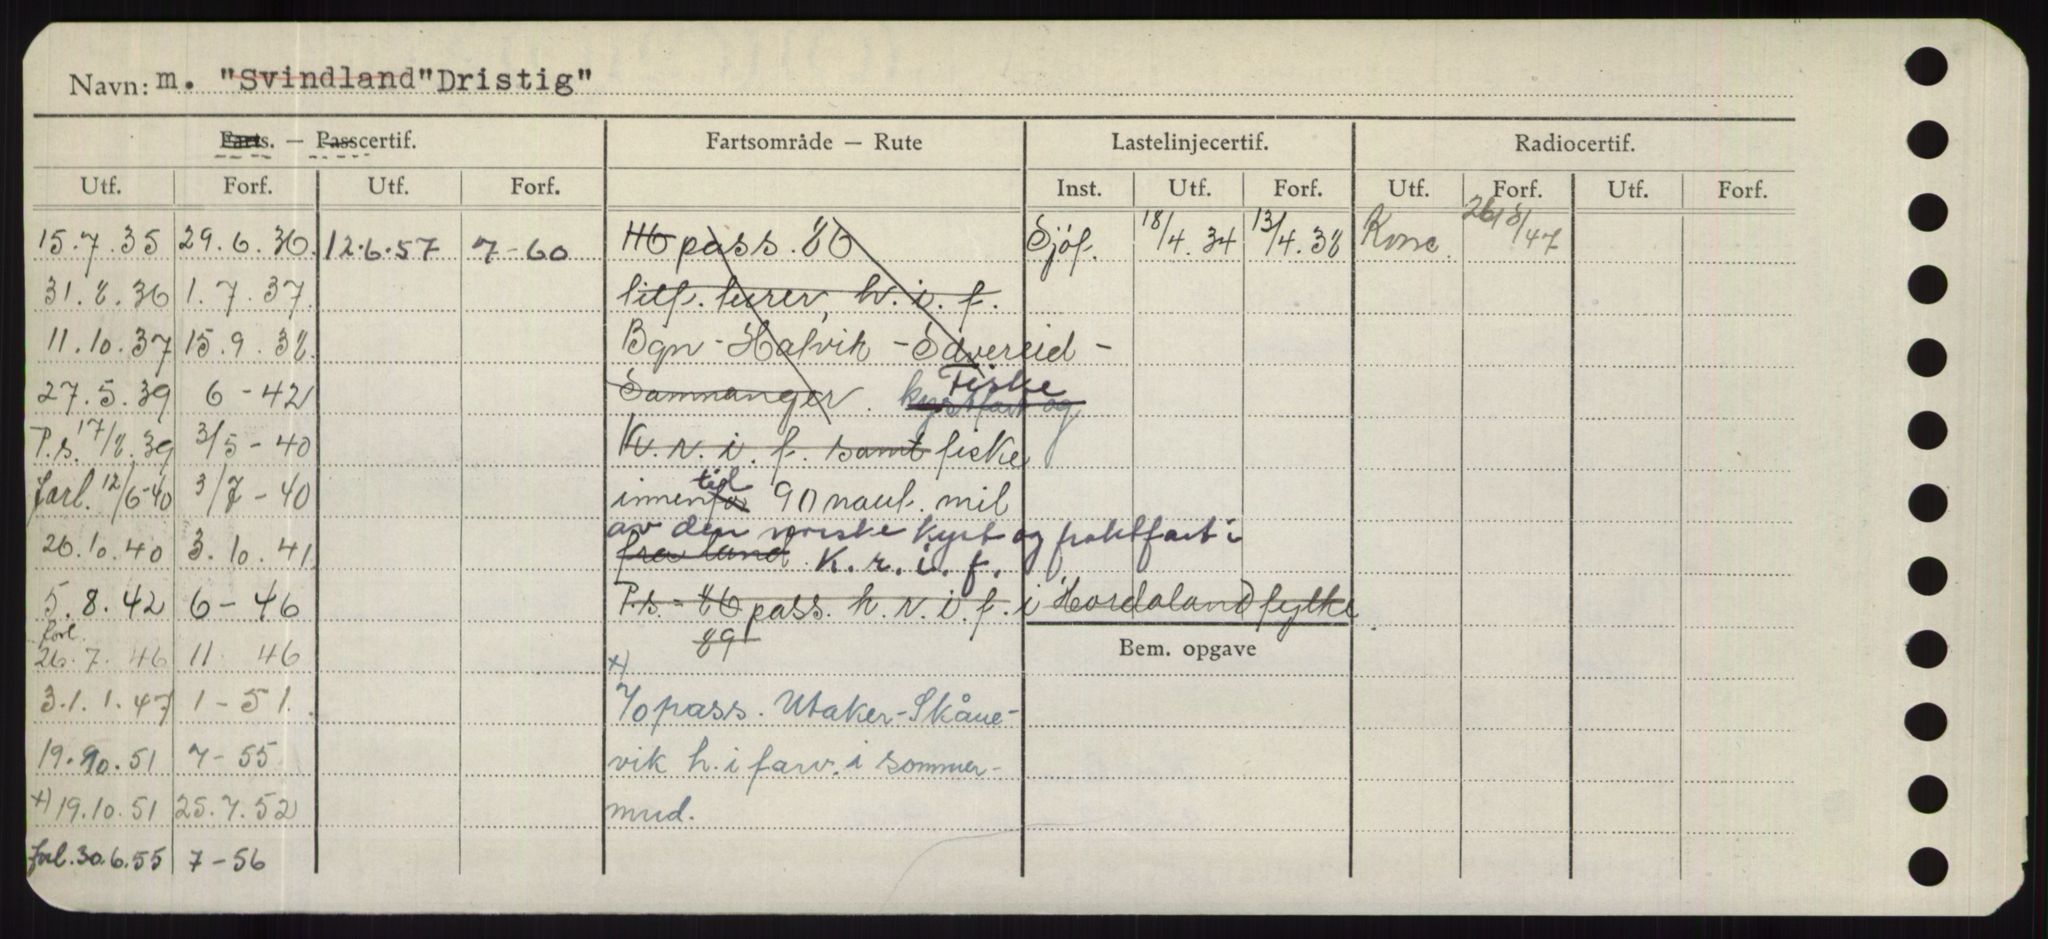 Navn: m. "Svindland "Dristig"
Farts. — Passcertif. Fartsområde — Rute Lastelinjecertif. Radiocertif.
Utf. Forf. Utf. Forf. Inst. Utf. Forf. Utf. Forf. Utf. Forf.
15.7.35 29.6.36. 12.6.57 7-60 pass. 86 Sjöf. 18/4.34 13/4.38 26/8/47
31.8.36 1.7.37. turer, h.i.f.
11.10.37 15.9.38. Bgn - Hatvik - Sævereid -
27.5.39 6-42 Samnanger. kystfart og Fiske
P.s. 17/8.39 3/5-40 K.r.i.f. samt fiske
forl. 12/6-40 3/7-40 innenfor til 90 naut. mil
av den norske kyst og fraktfart i
26.10.40 3.10.41 fra land. K.r.i.f.
5.8.42 6-46 P.s. - 86 pass. h.r.i.f. i Hordaland fylke.
89
Bem. opgave
forl. 26.7.46 11 46
x)
31.1.47 1-51. 70 pass. Utåker-Skåne-
19.10.51 7-55 vik h.i farv. i sommer-
x) 19.10.51 25.7.52 mnd.
forl. 30.6.55 7-56